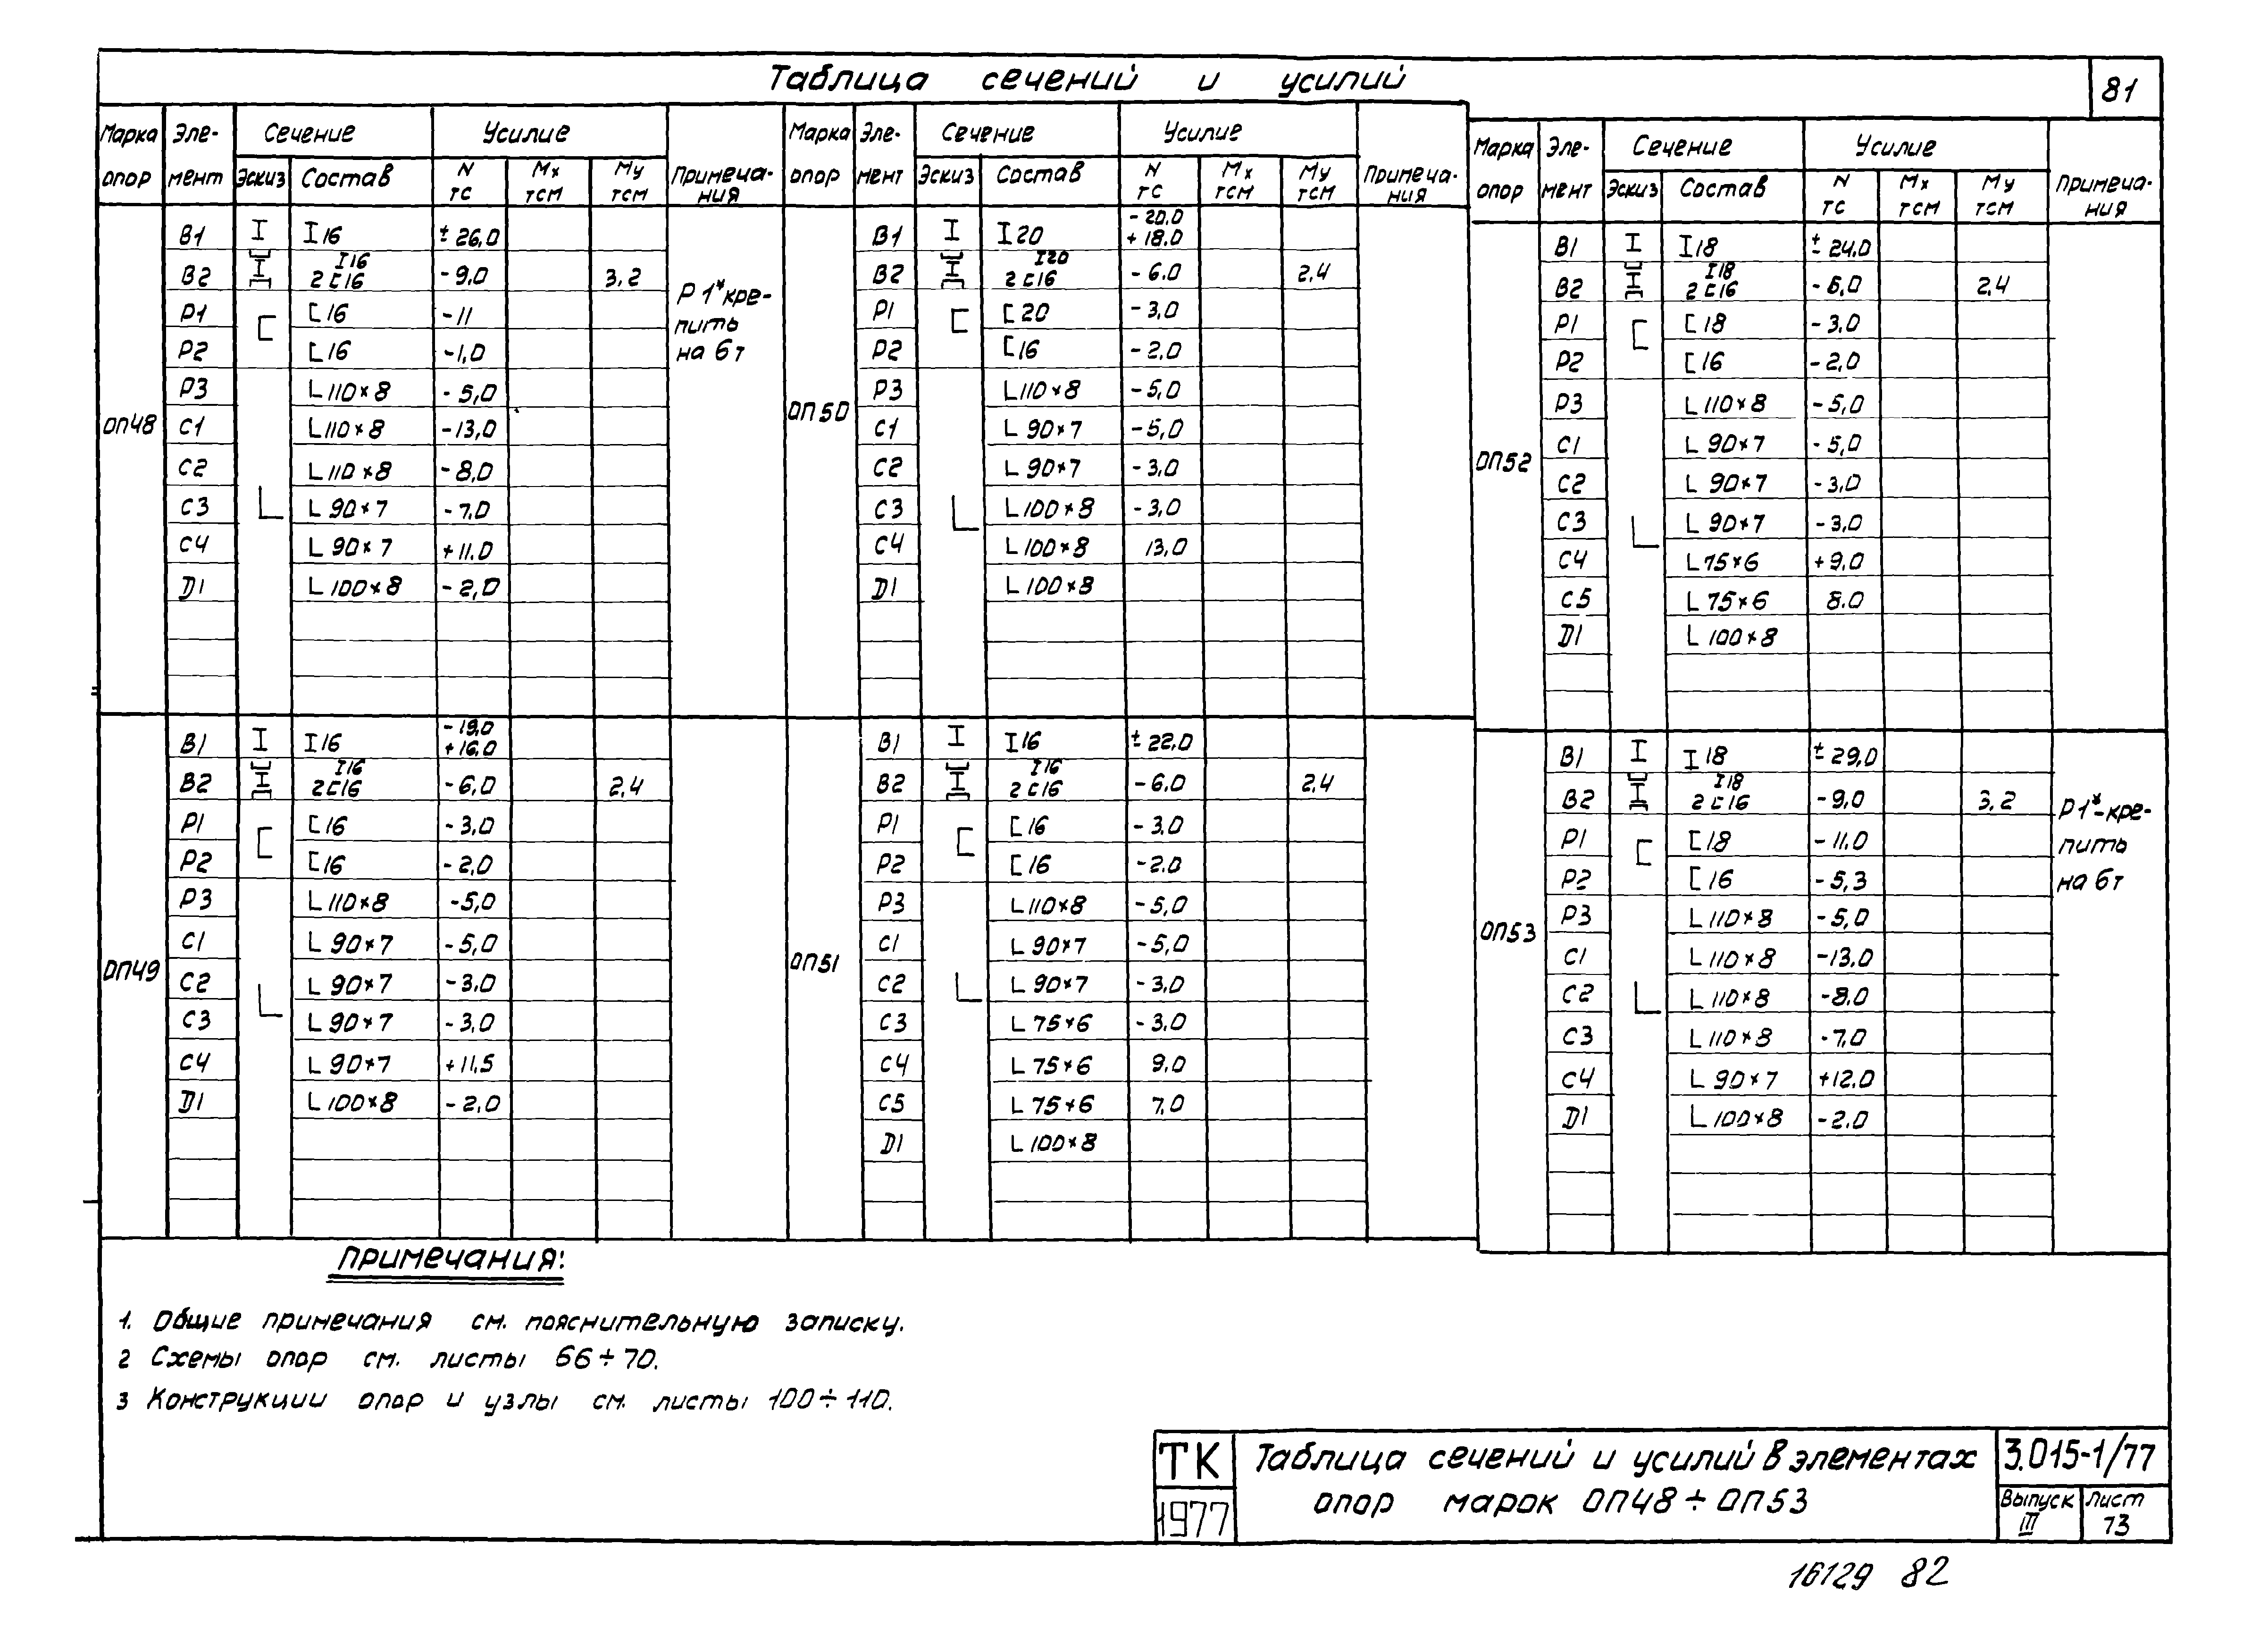 Таблица сечений и усилий
81
Марка опор | Эле-мент | Сечение | Усилие | Примеча-ния
Эскиз | Состав | N тс | Mx тсм | My тсм
ОП48
В1 I I16 ±26,0
В2 I16 2[16 -9,0 3,2
Р1 [16 -11
Р2 [16 -1,0
Р3 L110×8 -5,0
С1 L110×8 -13,0
С2 L110×8 -8,0
С3 L90×7 -7,0
С4 L90×7 +11.0
D1 L100×8 -2,0
Р1* кре-
пить
на 6т
ОП49
В1 I I16 -19,0 +16,0
В2 I16 2[16 -6,0 2,4
Р1 [16 -3,0
Р2 [16 -2,0
Р3 L110×8 -5,0
С1 L90×7 -5,0
С2 L90×7 -3,0
С3 L90×7 -3,0
С4 L90×7 +11,5
D1 L100×8 -2,0
Марка опор | Эле-мент | Сечение | Усилие | Примеча-ния
Эскиз | Состав | N тс | Mx тсм | My тсм
ОП50
В1 I I20 -20,0 +18.0
В2 I20 2[16 -6.0 2,4
Р1 [20 -3,0
Р2 [16 -2,0
Р3 L110×8 -5,0
С1 L90×7 -5,0
С2 L90×7 -3,0
С3 L100×8 -3,0
С4 L100×8 13,0
D1 L100×8
ОП51
В1 I I16 ±22,0
В2 I16 2[16 -6,0 2,4
Р1 [16 -3,0
Р2 [16 -2.0
Р3 L110×8 -5,0
С1 L90×7 -5,0
С2 L90×7 -3,0
С3 L75×6 -3,0
С4 L75×6 9,0
С5 L75×6 7,0
D1 L100×8
Марка опор | Эле-мент | Сечение | Усилие | Примеча-ния
Эскиз | Состав | N тс | Mx тсм | My тсм
ОП52
В1 I I18 ±24,0
В2 I18 2[16 -6,0 2,4
Р1 [18 -3,0
Р2 [16 -2,0
Р3 L110×8 -5,0
С1 L90×7 -5,0
С2 L90×7 -3,0
С3 L90×7 -3,0
С4 L75×6 +9,0
С5 L75×6 8.0
D1 L100×8
ОП53
В1 I I18 ±29,0
В2 I18 2[16 -9,0 3,2
Р1 [18 -11,0
Р2 [16 -5,3
Р3 L110×8 -5,0
С1 L110×8 -13,0
С2 L110×8 -8,0
С3 L110×8 -7,0
С4 L90×7 +12.0
D1 L100×8 -2.0
Р1*-кре-
пить
на 6т
Примечания:
1. Общие примечания см. пояснительную записку.
2 Схемы опор см. листы 66÷70.
3 Конструкции опор и узлы см. листы 100÷110.
ТК
1977
Таблица сечений и усилий в элементах
опор марок ОП48÷ОП53
3.015-1/77
Выпуск III
Лист 73
16129 82